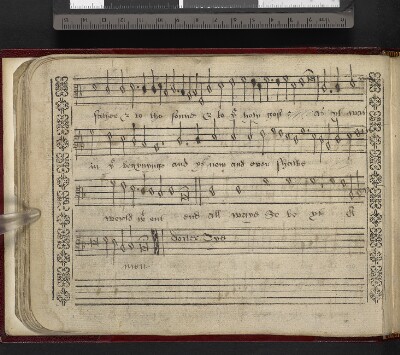 father & to the sonne & to yͤ holy gost : as yt was
in yͤ begynnyng and ys now and ever shalbe
world wᵗ out end all ways So be yt A
men